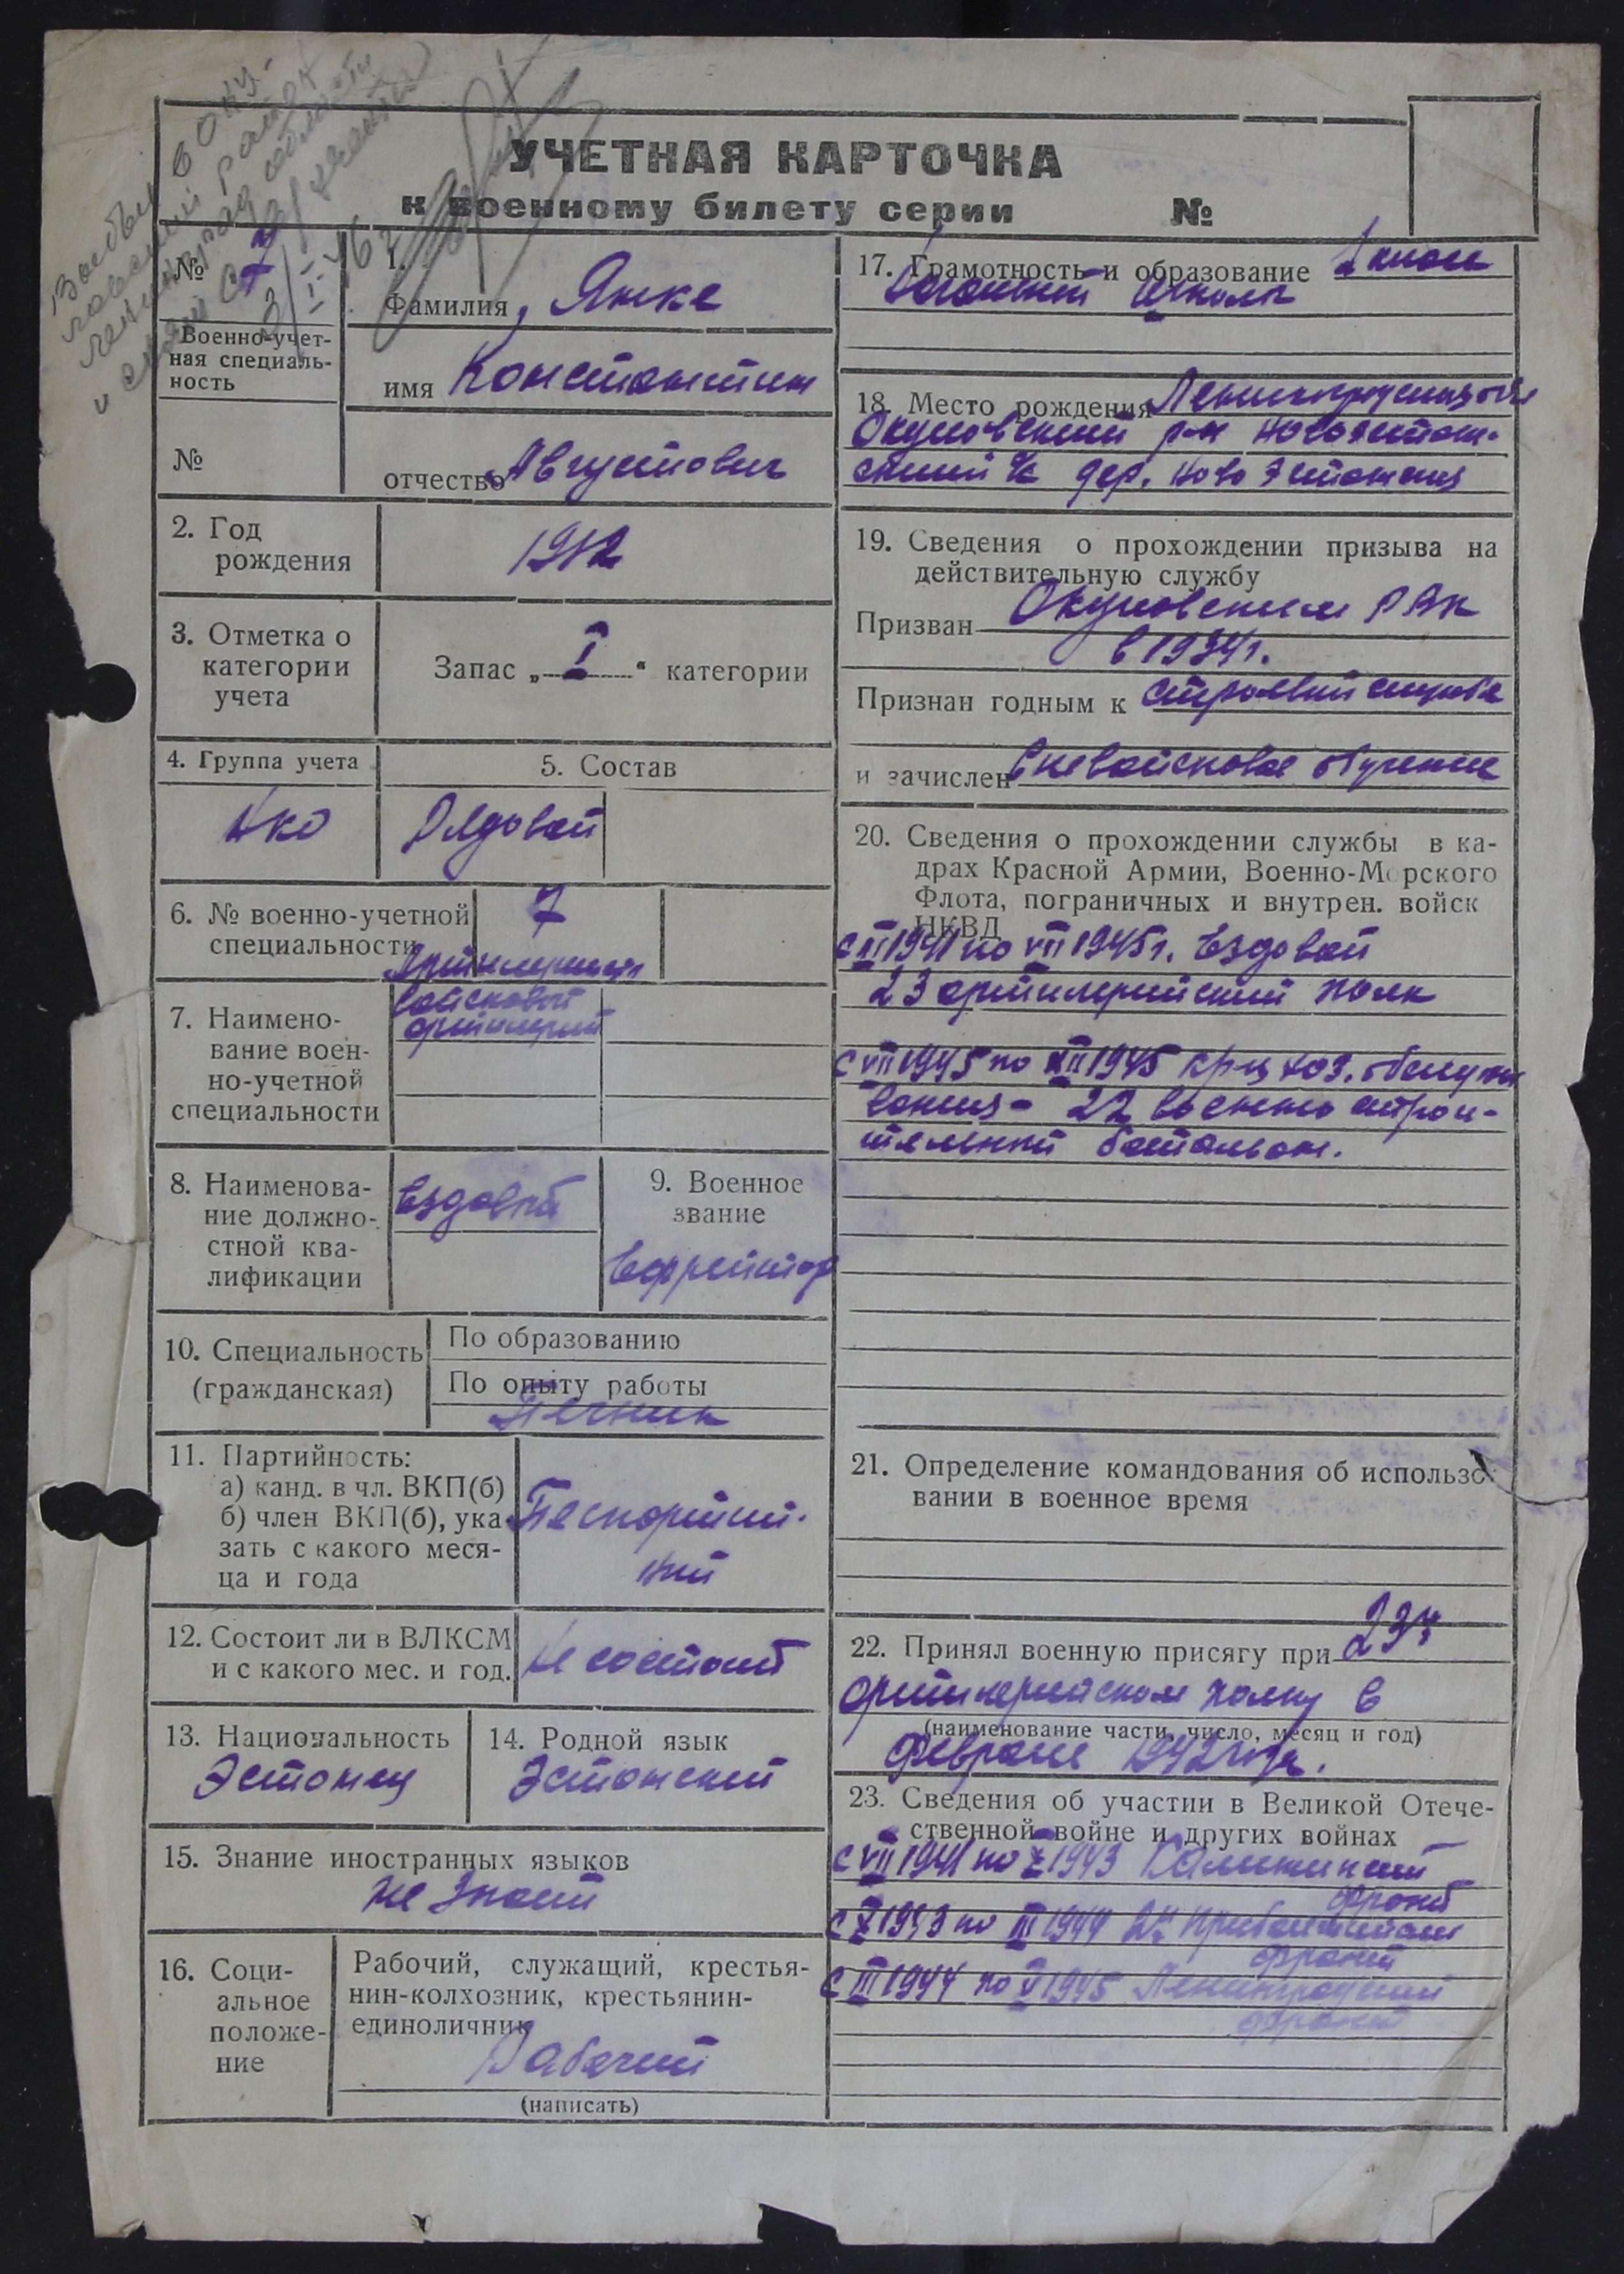 УЧЕТНАЯ КАРТОЧКА
к военному билету серии №
№ 7
Военно-учет-
ная специаль-
ность
№
1.
Фамилия Янке
имя Константин
отчество Августович
2. Год
рождения
1912
3. Отметка о
категории
учета
Запас „ I “ категории
4. Группа учета
5. Состав
НКО
Рядовой
6. № военно-учетной
специальности
7
7. Наимено-
вание воен-
но-учетной
специальности
войсковой
8. Наименова-
ние должно-
стной ква-
лификации
Ездовой
9. Военное
звание
Ефрейтор
10. Специальность
(гражданская)
По образованию
По опыту работы
Печник
11. Партийность:
а) канд. в чл. ВКП(б)
б) член ВКП(б), ука-
зать с какого меся-
ца и года
12. Состоит ли в ВЛКСМ
и с какого мес. и год.
Не состоит
13. Национальность
Эстонец
14. Родной язык
Эстонский
15. Знание иностранных языков
Не знает
16. Соци-
альное
положе-
ние
Рабочий, служащий, крестья-
нин-колхозник, крестьянин-
единоличник
Рабочий
(написать)
17. Грамотность и образование
школы
18. Место рождения
Окуловский р-н Новоэстон-
ский с/с дер. Ново Эстонская
19. Сведения о прохождении призыва на
действительную службу
Призван Окуловским РВК
в 1934 г.
Признан годным к строевой службе
и зачислен вневойсковое обучение
20. Сведения о прохождении службы в ка-
драх Красной Армии, Военно-Морского
Флота, пограничных и внутрен. войск
НКВД
1941 по VII 1945 г. Ездовой
23 артилерийский полк
с VII 1945 по XII 1945 хоз. обслужи
вания - 22 военно строи-
тельный батальон.
21. Определение командования об использо-
вании в военное время
22. Принял военную присягу при 23м
артилерийском полку в
(наименование части, число, месяц и год)
феврале 1942 года.
23. Сведения об участии в Великой Отече-
ственной войне и других войнах
с VII 1941 по X 1943 Калининский
фронт
с X 1943 по III 1944 2й Прибалтийский
фронт
с III 1944 по V 1945 Ленинградский
фронт